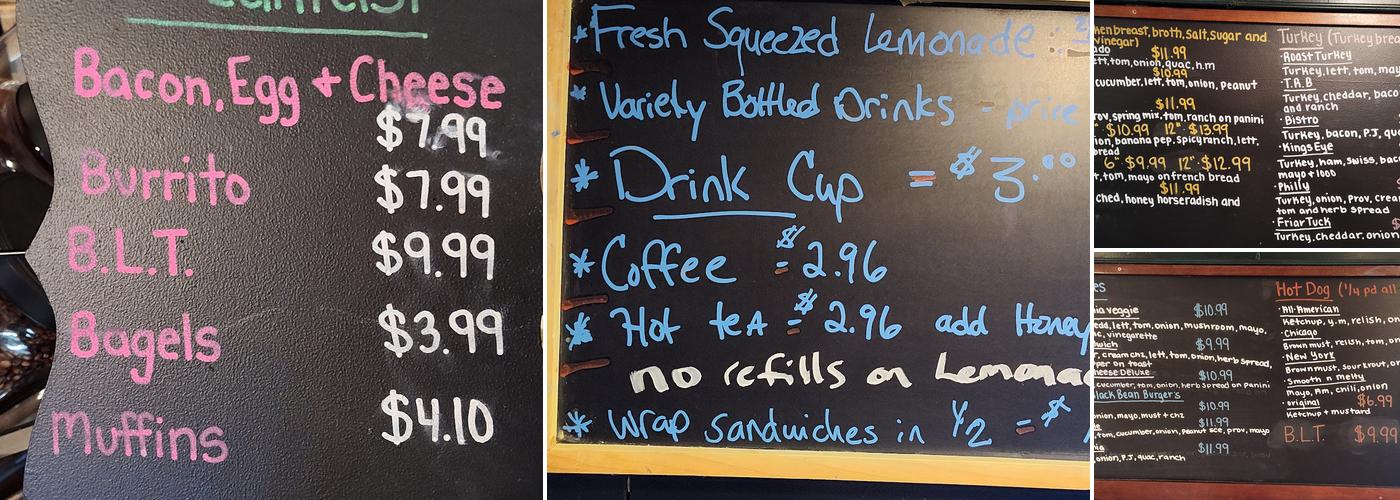 Bacon, Egg + Cheese
$7.99
Burrito $7.99
B.L.T. $9.99
Bagels $3.99
Muffins $4.10
* Fresh Squeezed Lemonade :
* Variety Bottled Drinks - price
* Drink Cup = $3.00
* Coffee = $2.96
* Hot teA = $2.96 add Honey
no refills on Lemonad
* Wrap sandwiches in 1/2 = $
breast, broth, salt, sugar and
vinegar)
$11.99
lett, tom, onion, guac, h.m
$10.99
cucumber, lett, tom, onion, peanut
$11.99
spring mix, tom, ranch on panini
$10.99 12" $13.99
banana pep. spicy ranch, lett,
bread
6" $9.99 12" $12.99
tom, mayo on french bread
$11.99
ched, honey horseradish and
Turkey (Turkey brea
· Roast Turkey
Turkey, lett, tom, may
T.R.B
Turkey, cheddar, baco
and ranch
· Bistro
Turkey, bacon, P.J, qua
· Kings Eye
Turkey, ham, swiss, bac
mayo + 1000
· Philly
Turkey, onion, Prov, crea
tom and herb spread
· Friar Tuck
Turkey, cheddar, onion
veggie $10.99
lett, tom, onion, mushroom, mayo,
vinegarette
$9.99
cream chz, lett, tom, onion, herb spread,
on toast
cheese Deluxe $10.99
cucumber, tom, onion, herb spread on panini
Black Bean Burger's
$10.99
onion, mayo, must + chz
$11.99
tom, cucumber, onion, Peanut sce, prov, mayo
$11.99
onion, P.J, guac, ranch
Hot Dog (1/4 pd all
· All-American
Ketchup, y.m, relish, on
· Chicago
Brown must, relish, tom, on
· New York
Brown must, sour krout, on
· Smooth n melty
mayo, Am, chili, onion
· original $6.99
Ketchup + mustard
B.L.T. $9.99